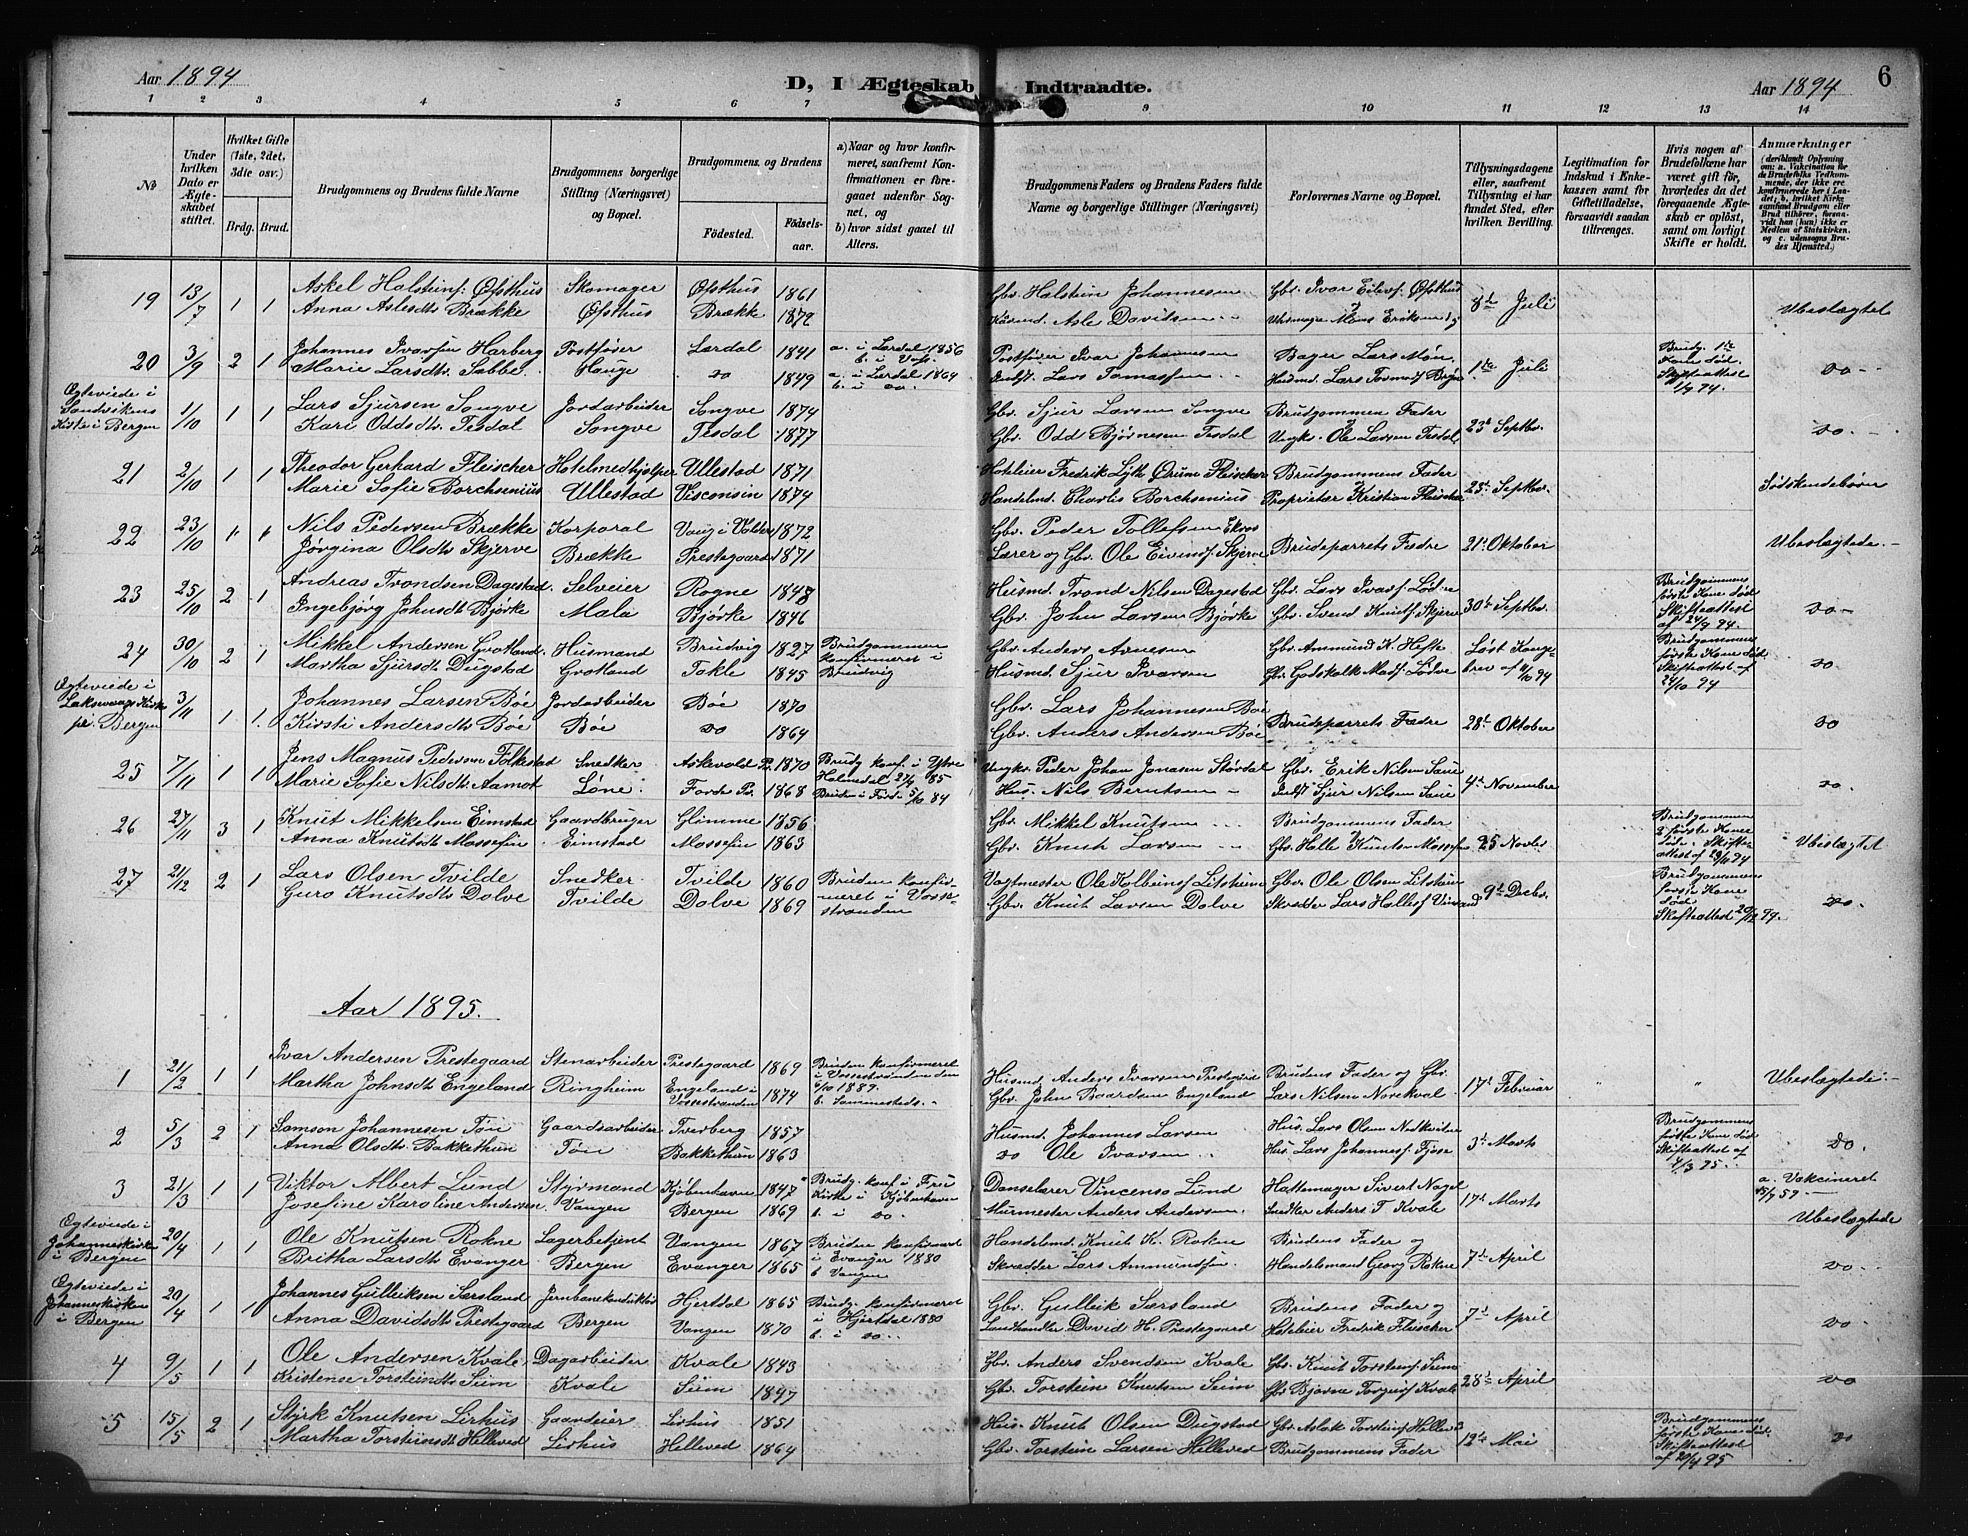 Aar 1894
D, I Ægteskab Indtraadte.
Aar 1894
6
1 2 3 4 5 6 7 9 10 11 12 13 14
No
Under hvilken Dato er Ægteskabet stiftet.
Hvilket Gifte (1ste, 2det, 3die osv.)
Brdg. Brud.
Brudgommens og Brudens fulde Navne
Brudgommens borgerlige Stilling (Næringsvei) og Bopæl.
Brudgommens. og Brudens
Fødested. Fødsels-aar.
a) Naar og hvor konfirmeret, saafremt Konfirmationen er foregaaet udenfor Sognet, og
b) hvor sidst gaaet til Alters.
Brudgommens Faders og Brudens Faders fulde Navne og borgerlige Stillinger (Næringsvei)
Forlovernes Navne og Bopæl.
Tillysningsdagene eller, saafremt Tillysning ei har fundet Sted, efter hvilken Bevilling.
Legitimation for Indskud i Enkekassen samt for Giftetilladelse, forsaavidt saadan tiltrænges.
Hvis nogen af Brudefolkene har været gift før, hvorledes da det foregaaende Ægteskab er opløst, samt om lovligt Skifte er holdt.
Anmærkninger
19 13/7 1 1 Askel Halsteinf: Øfsthus Skomager Øfsthus 1861 Gbr. Halstein Johannesen Gbr. Ivar Eilevf. Øfsthus 8de Juli Ubeslægtet
Anna Aslesdtr Brække Øfsthus Brække 1872 Asle Davidsen
20 3/9 2 1 Johannes Ivarsen Harberg Postfører Lærdal 1841 a. i Lærdal 1856 Postfører Ivar Johannesen Bager Lars Møn 1ste Juli Brudg. 1ste Kone død. Skifteattest 1/9 94. do
Marie Larsdtr Sabbe Hauge do 1849 a. i Lærdal 1864 b. i do. Lars Tomassen
Egteviede i Sandvikens Kirke i Bergen 1/10 1 1 Lars Sjursen Songve Jordarbeider Songve 1874 Gbr. Sjur Larsen Songve Brudgommen Fader 23de Septbr. do.
Kari Oddsdtr Tesdal Songve Tesdal 1877 Gbr. Odd Bjørnesen Tesdal Ungk. Ole Larsen Tesdal
21 2/10 1 1 Theodor Gerhard Fleischer Hotelmedhjelper Ullestad 1871 Hoteleier Fredrik Lyth Ørum Fleischer Brudgommens Fader Septbr. Sødskendebørn
Marie Sofie Borchsenius Ullestad Visconsin 1874 Handelmd. Charlis Borchsenius Proprietær Kristian Fleischer
22 23/10 " " Nils Pedersen Brække Korporal 1872 Gbr. Peder Tollefsen Brudeparrets Fædre 21de Oktober Ubeslægtede.
Jørgina Olsdtr Skjerve Brække Prestegaard 1871 Lærer og Gbr. Ole Skjerve
23 25/10 2 1 Andreas Trondsen Dagestad Selveier Rogne 1848 Husmd. Trond Nilsen Dagestad Gbr. Lars Ivarsf. 30te Septbr. Brudgommens første Kone død Skifteattest af 24/9 94. do
Ingebjørg Johnsdtr Bjørke Mala Bjørke 1846 Gbr. John Larsen Bjørke Gbr. Svend Knutsf Skjerve
24 30/10 2 1 Mikkel Andersen Grotland Husmand Brudvig 1827 Brudgommen konfirmeret i Brudvig Gbr. Anders Arnesen Gbr. Ammund K. Hefte Brudgommens første Kone død. Skifteattest af 24/10 94 do
Martha Sjursdtr Dugstad Grotland Takle 1845 Husmd Sjur Ivarsen
Egteviede i Laksevaags Kirke pr. Bergen 3/11 1 1 Johannes Larsen Bøe Jordarbeider Bøe 1870 Gbr. Lars Johannesen Bøe Brudeparrets Fædre 28de Oktober do
Kirsti Andersdtr Bøe Bøe do 1864 Gbr. Anders Andersen Bøe
25 7/11 1 1 Jens Magnus Pedersen Folkestad Snedker Askevold 1870 Brudg konf. i Ungk. Peder Johan Jonasen Størdal Gbr. Erik Nilsen Saue 4de November do.
Marie Sofie Nilsdtr. Aamot Løne Førde 1868 Bruden i Førde 5/10 84 Hus. Nils Berntsen Sjur Nilsen Saue
26 27/11 3 1 Knut Mikkelsen Eimstad Gaardbruger Glimme 1856 Gbr. Mikkel Knutsen Brudgommens Fader 25 Novbr Brudgommens 2 første Koner døde. Ubeslægtet
Anna Knutsdtr Mossefin Eimstad Mossefin 1863 Gbr. Knut Larsen
27 21/12 2 1 Lars Olsen Tvilde Snedker Tvilde 1860 Bruden konfirmeret i Vossestranden Vogtmester Ole Kolbeinsf Litsheim Gbr. Ole Olsen Litsheim 9de Decbr. Brudgommens første Kone død Skifteattest do.
Guro Knutsdtr Dolve Tvilde Dolve 1869 Gbr. Knut Larsen Dolve
Aar 1895.
1 21/2 1 1 Ivar Andersen Prestegaard Stenarbeider Prestegaard 1869 Bruden konfirmeret i Vossestranden den 6/10 1889. b. Sammesteds. Husmd. Anders Ivarsen Prestegård Brudens Fader og Gbr. 17de Februar " " Ubeslægtede.
Martha Johnsdtr Engeland Ringheim Engeland i Vossestranden 1874 Gbr. John Baardsen Engeland Lars Nilsen Norekval
2 5/3 2 1 Samson Johannesen Tøn Gaardsarbeider Tverberg 1857 Husmd. Johannes Larsen Hus. Lars Olsen Nedkvitne 3de Marts Brudgommens første Kone død Skifteattest af 4/3 95 Do.
Anna Olsdtr Bakkethun Tøn Bakkethun 1863 do Ole Ivarsen Hus. Lars Johannesf. Fjøse
3 21/3 1 1 Viktor Albert Lund Styrmand Kjøbenhavn 1847 Brudg. konf i Frue Kirke i Kjøbenhavn b. i do. Danselærer Vincenso Lund Hattemager Sivert Nagel 17de Marts a. Vakcineret Ubeslægtede
Josefine Karoline Andersen Vangen Bergen 1869 Murmester Anders Andersen Anders T. Kvale
Egteviede i Johanneskirken i Bergen 20/4 1 1 Ole Knutsen Rokne Lagerbetjent Vangen 1867 Bruden konfirmeret i Evanger 1880 b Vangen Handelsmd. Knut K. Rokne Brudens Fader og 7de April do.
Britha Larsdtr Evanger Bergen Evanger 1865 Skrædder Lars Ammundsen Handelsmand Georg Rokne
Egteviede i Johanneskirken i Bergen 20/4 1 1 Johannes Gulleiksen Særsland Jernbanekonduktør Hertdal 1865 Brudg. konfirmeret i Hjertdal 1880 b. i do. Gbr. Gulleik Særsland Brudens Fader og 7de April do
Anna Davidsdtr Prestegaard Bergen Vangen 1870 Landhandler David H. Prestegaard Hoteleier Fredrik Fleischer
4 9/5 1 1 Ole Andersen Kvale Dagarbeider Kvale 1843 Gbr. Anders Svendsen Kvale Gbr. Knut Torsteinsf. Seim 28de April do
Kristense Torsteinsdtr Seim Kvale Seim 1847 Gbr. Torstein Knutsen Seim Gbr Bjarne Torgeirsf Kvale
5 15/5 2 1 Styrk Knutsen Lirhus Gaardeier Lirhus 1851 Hus. Knut Olsen Dugstad Gbr. Aslak Torsteinsf Helleve 12te Mai Brudgommens første Kone død. Skifteattest af 29/4 95 do
Martha Torsteinsdtr Helleved Lirhus Helleved 1864 Gbr. Torstein Larsen Helleved Brudgommens Fader